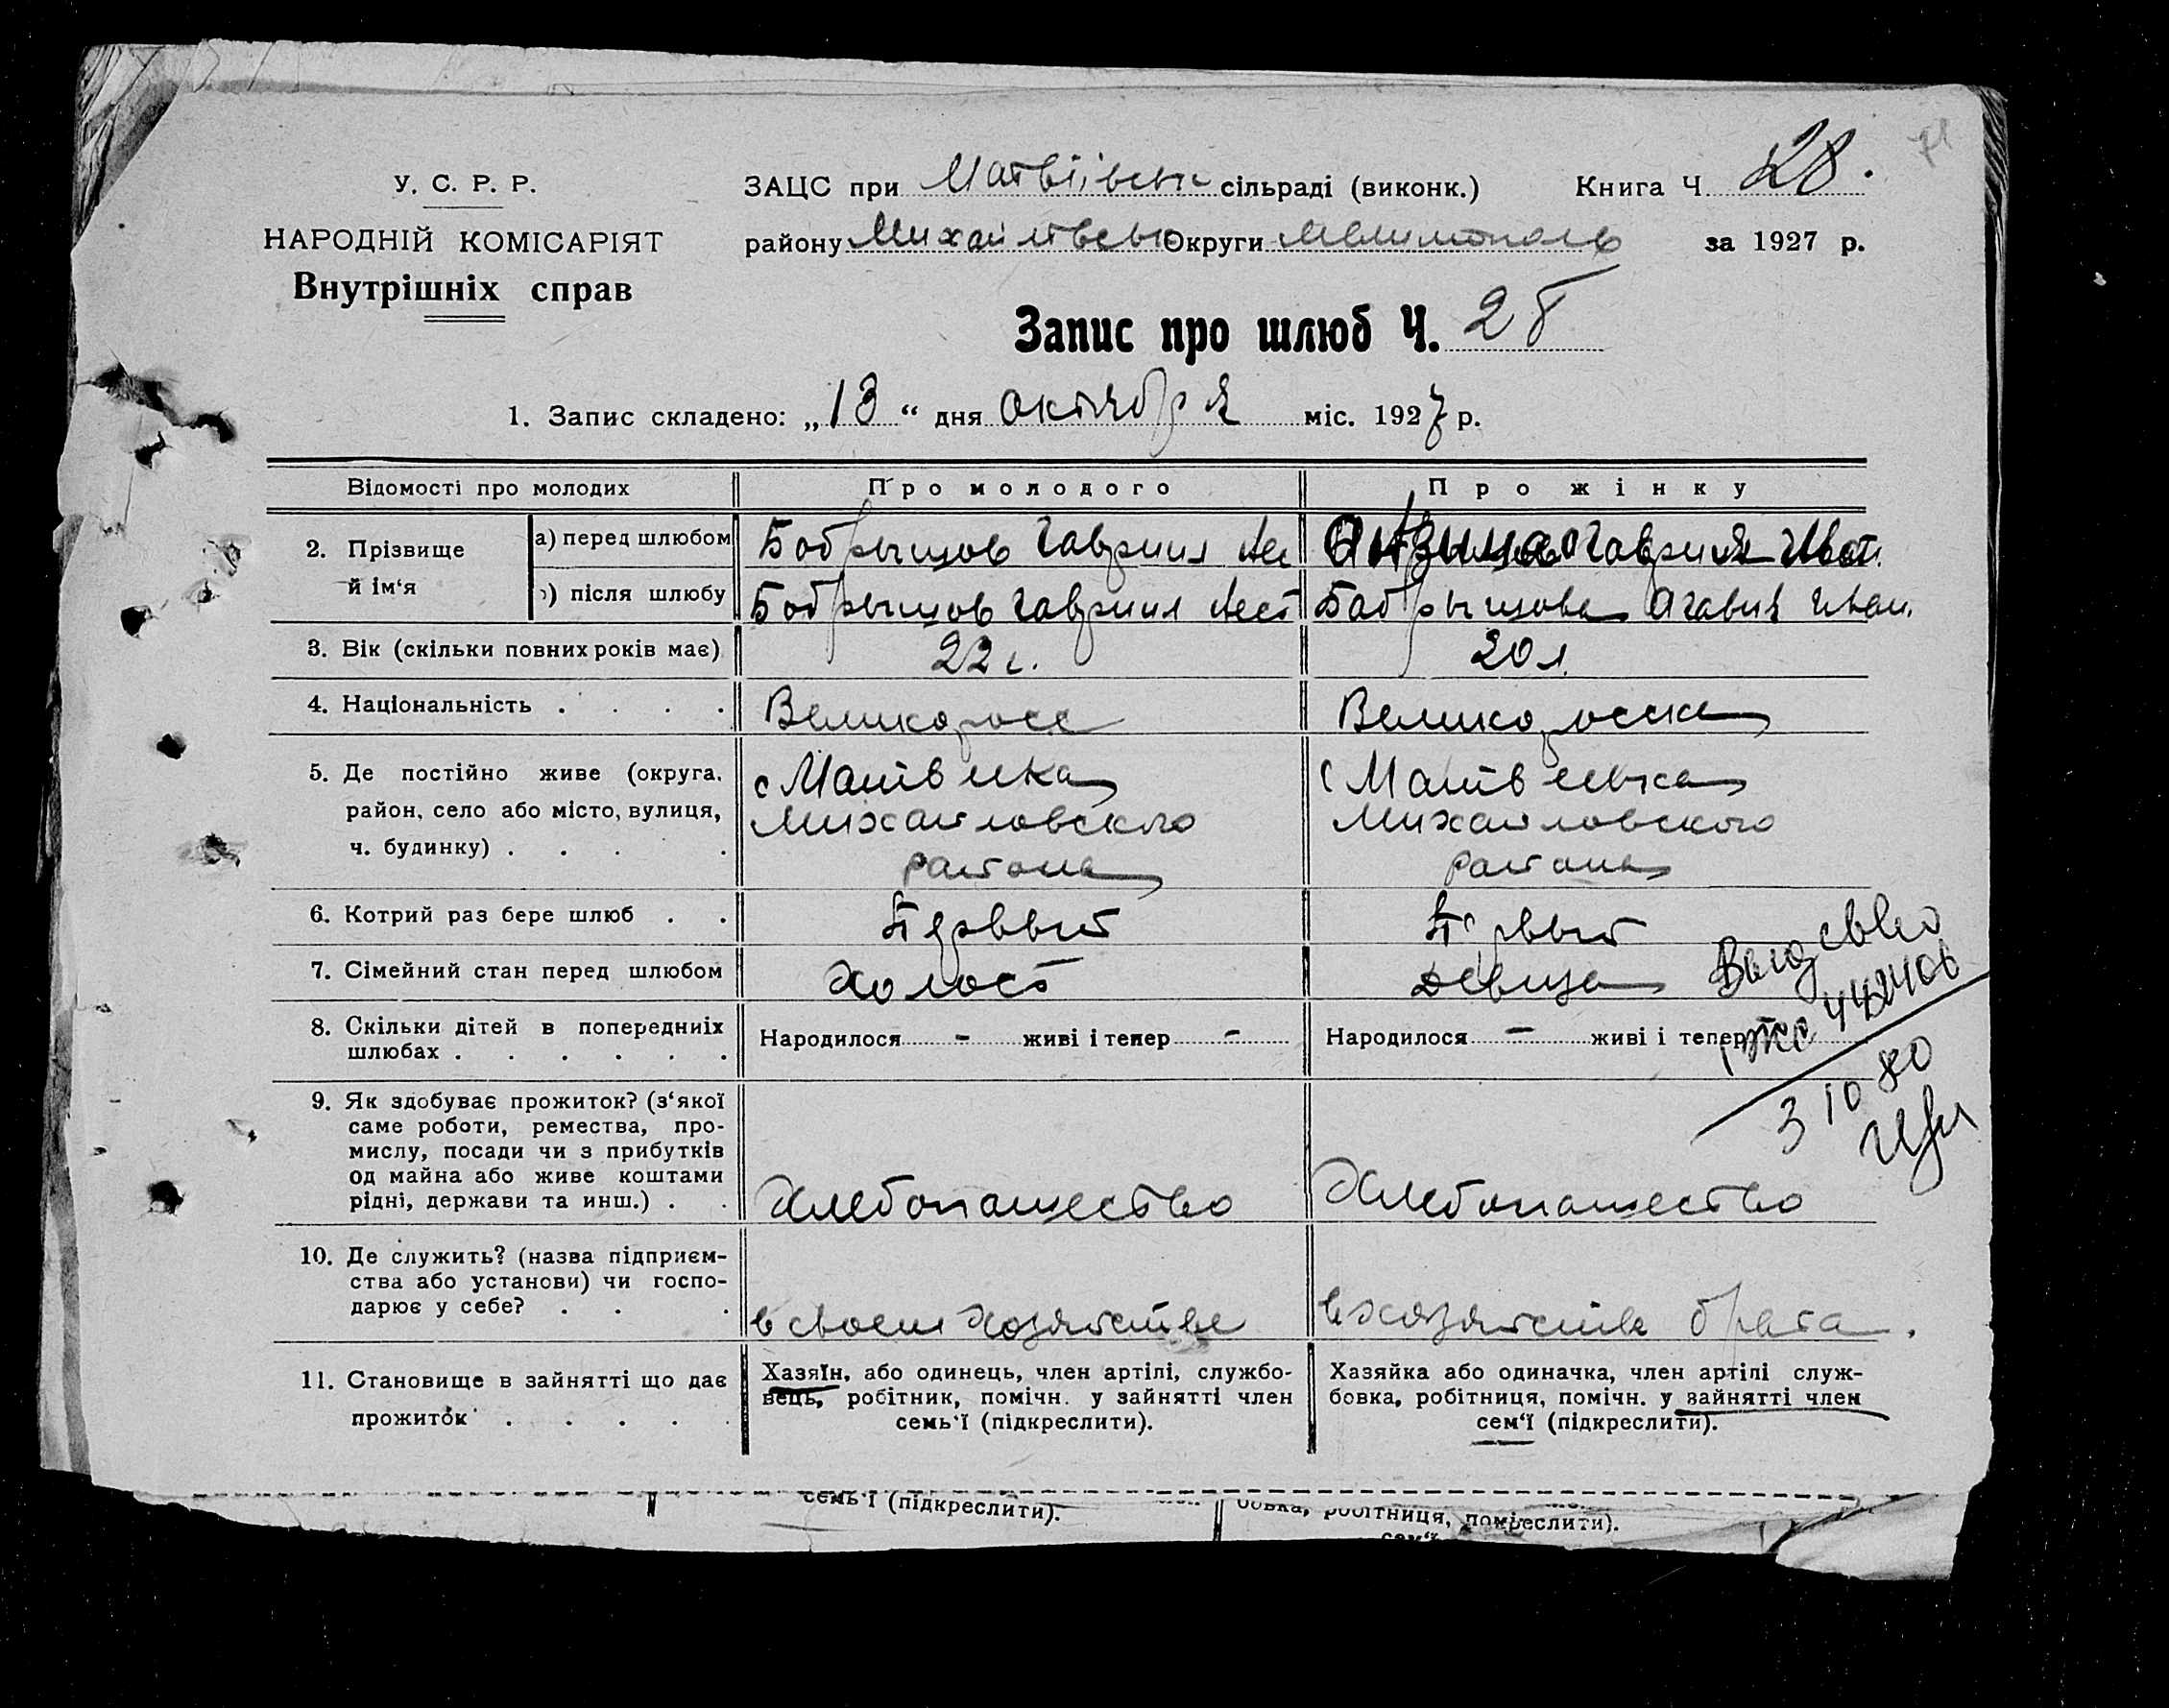 У. С. Р. Р.
НАРОДНІЙ КОМІСАРІЯТ
Внутрішніх справ
ЗАЦС при Матвіївськ сільраді (виконк.) Книга Ч 28.
району Михайлівськ Округи Мелитополь за 1927 р.
Запис про шлюб Ч. 28
1. Запис складено: „13“ дня октября міс. 1927 р.
Відомості про молодих Про молодого Про жінку
2. Прізвище й ім‘я
а) перед шлюбом Бобрышов Гавриил Нес
) після шлюбу Бобрышов Гавриил Нест Бобрышова Агавия Иван.
3. Вік (скільки повних років має) 22 г. 20 л.
4. Національність . . . . Великоросс Великоросска
5. Де постійно живе (округа, район, село або місто, вулиця, ч. будинку) . . . .
с Матвеика
Михайловского
района
с Матвеевка
Михайловского
района
6. Котрий раз бере шлюб . . Первый Первый
7. Сімейний стан перед шлюбом Холост Девица
8. Скільки дітей в попередниіх шлюбах . . . . . .
Народилося - живі і тепер -
Народилося - живі і тепер
3 10 80
9. Як здобуває прожиток? (з‘якої
саме роботи, ремества, про-
мислу, посади чи з прибутків
од майна або живе коштами
рідні, держави та инш.) . .
Хлебопашество Хлебопашество
10. Де служить? (назва підприєм-
ства або установи) чи госпо-
дарює у себе? . . .
в своем хозяйстве в хозяйстве брата.
11. Становище в зайнятті що дає
прожиток . . . . .
Хазяїн, або одинець, член артілі, службо-
вець, робітник, помічн. у зайнятті член
семь‘ї (підкреслити).
Хазяйка або одиначка, член артілі служ-
бовка, робітниця, помічн. у зайнятті член
сем‘ї (підкреслити).
семь‘ї (підкреслити).
бовка, робітниця,